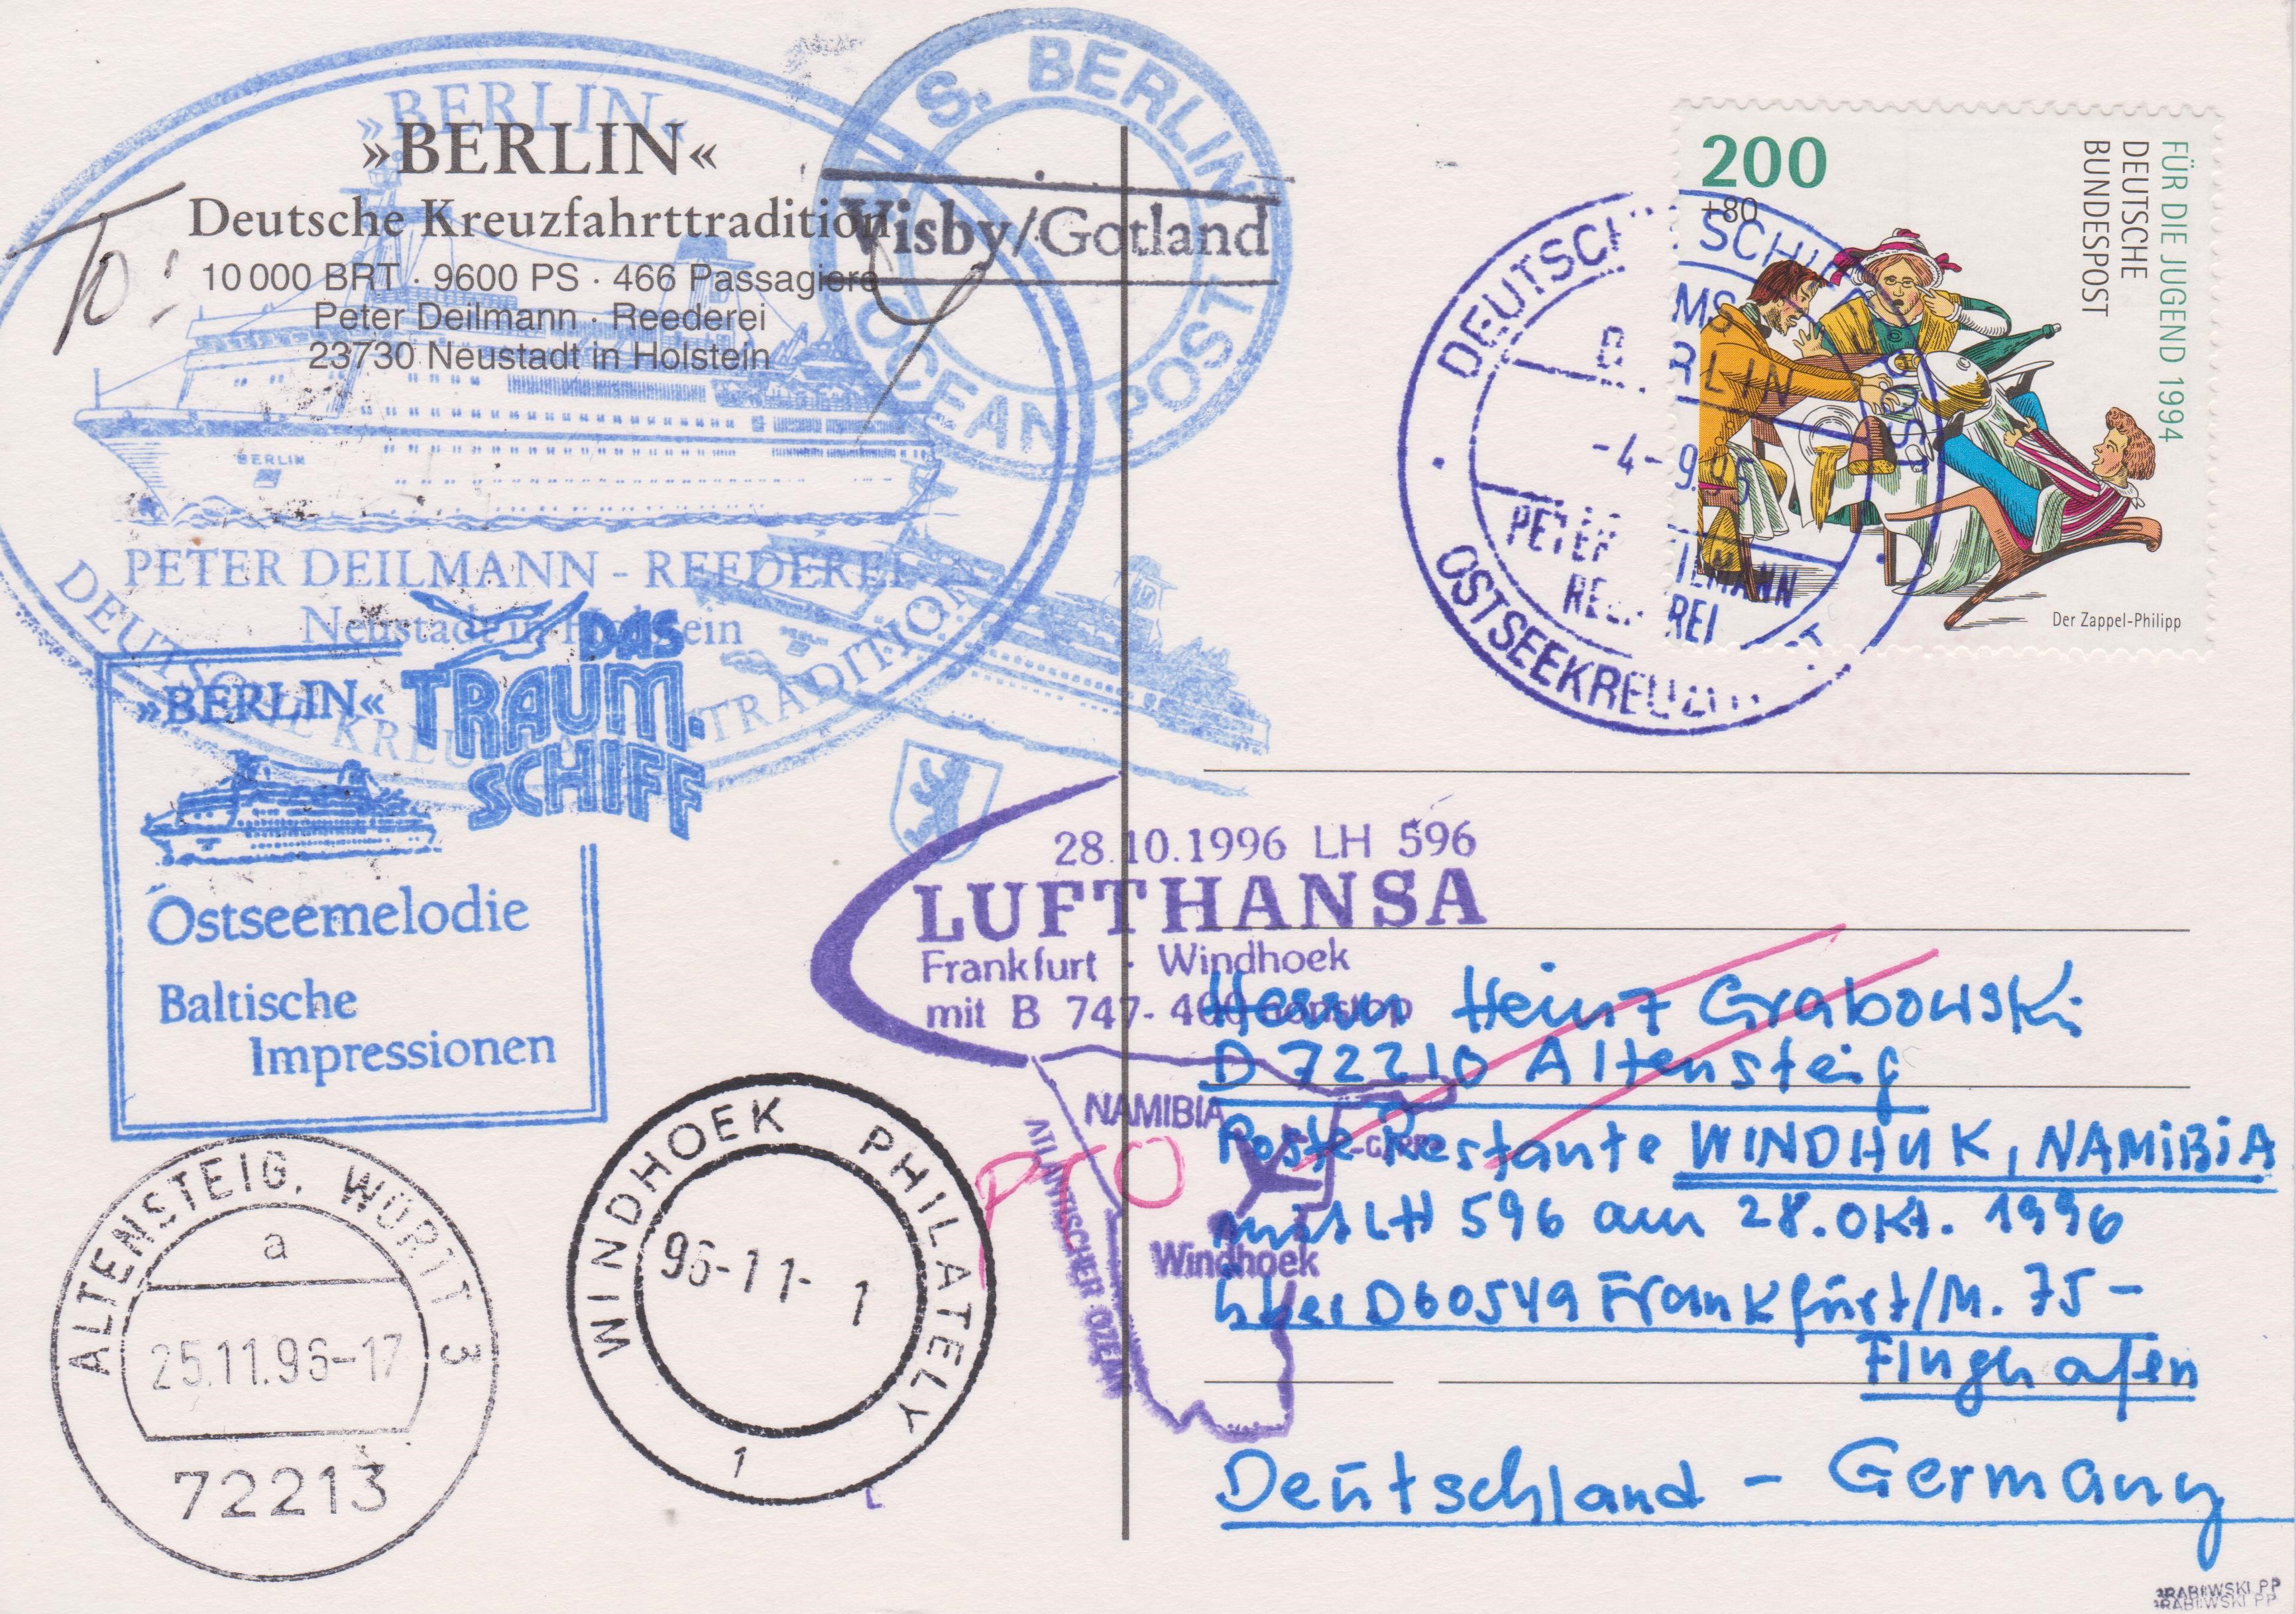 »BERLIN«
»BERLIN«
Deutsche Kreuzfahrttradition
10 000 BRT · 9600 PS · 466 Passagiere
Peter Deilmann · Reederei
23730 Neustadt in Holstein
To:
M.S. BERLIN
OCEAN POST
Visby/Gotland
BERLIN
PETER DEILMANN - REEDEREI
Neustadt in Holstein
DEUTSCHE KREUZFAHRTTRADITION
»BERLIN«
DAS
TRAUM.
SCHIFF
Ostseemelodie
Baltische
Impressionen
200
+80
FÜR DIE JUGEND 1994
DEUTSCHE
BUNDESPOST
Der Zappel-Philipp
DEUTSCHE SCHIFFSPOST
MS
BERLIN
-4-9.95
PETER DEILMANN
REEDEREI
OSTSEEKREUZFAHRT
28.10.1996 LH 596
LUFTHANSA
Frankfurt · Windhoek
mit B 747-400 nonstop
NAMIBIA
ATLANTISCHER OZEAN
Windhoek
PTO
Herrn Heinz Grabowski
D 72210 Altensteig
Poste Restante WINDHUK, NAMiBiA
mit LH 596 am 28. OKt. 1996
über D60549 Frankfurt/M. 75-
Flughafen
Deutschland - Germany
ALTENSTEIG, WÜRTT 3
a
25.11.96-17
72213
WINDHOEK PHILATELY
96-11-1
1
GRABOWSKI PP
GRABOWSKI PP